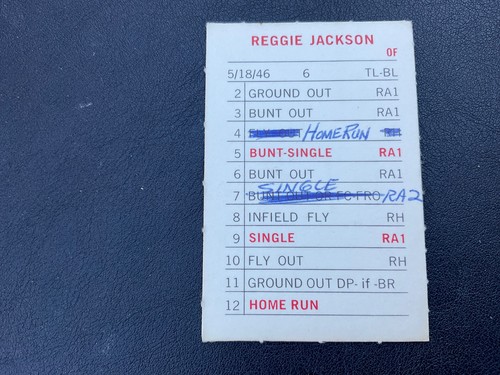 REGGIE JACKSON
OF
5/18/46 6 TL-BL
2 GROUND OUT RA1
3 BUNT OUT RA1
4 FLY OUT HOME RUN RH
5 BUNT-SINGLE RA1
6 BUNT OUT RA1
SINGLE
7 BUNT OUT OR FC-FRO RA2
8 INFIELD FLY RH
9 SINGLE RA1
10 FLY OUT RH
11 GROUND OUT DP- if -BR
12 HOME RUN